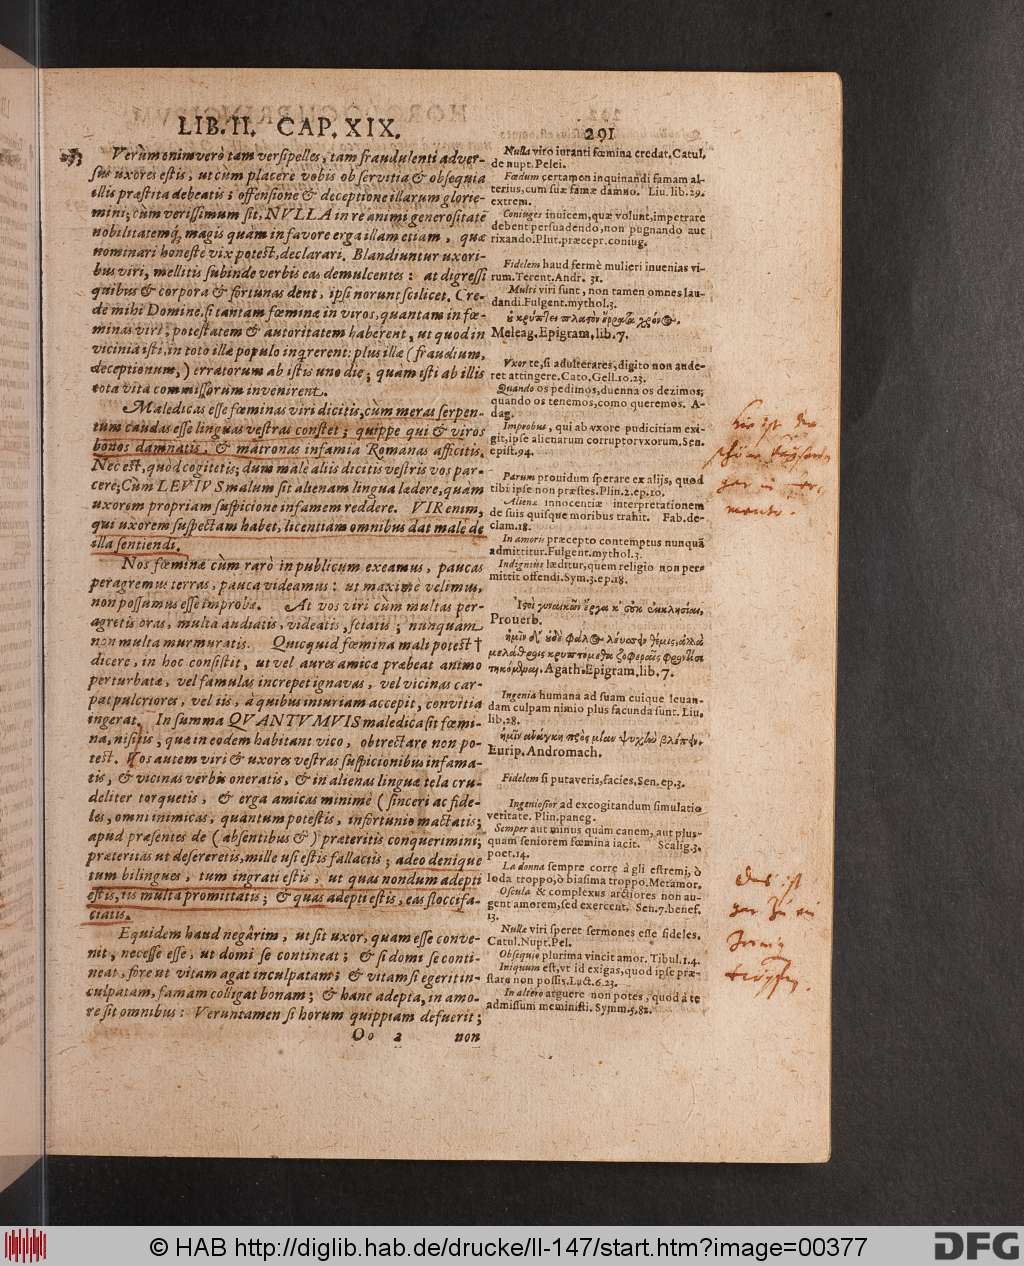 LIB. II. CAP. XIX. 291
Verùm enimverò tam versipelles, tam fraudulenti adver-
sus uxores estis, ut cùm placere vobis ob servitia & obsequia
illis præstita debeatis; offensione & deceptione illarum glorie-
mini; cùm verissimum sit, NVLLA in re animi generositatē
nobilitatemq́; magis quàm in favore erga illam etiam, quæ
nominari honestè vix potest, declarari. Blandiuntur uxori-
bus viri, mellitis subinde verbis eas demulcentes: at digressi
quibus & corpora & fortunas dent, ipsi norunt scilicet. Cre-
de mihi Domine, si tantam fœminæ in viros, quantam in fœ-
minas viri, potestatem & autoritatem haberent, ut quod in
vicinia isti, in toto illæ populo inqrerent: plus illæ (fraudium,
deceptionum,) erratorum ab istis uno die; quàm isti ab illis
tota vita commissorum invenirent.
Maledicas esse fœminas viri dicitis, cùm meras serpen-
tum caudas esse linguas vestras constet; quippe qui & viros
bonos damnatis, & matronas infamia Romanas afficitis.
Nec est, quòd cogitetis; dum male aliis dicitis vestris vos par-
cere; Cùm LEVIVS malum sit alienam lingua lædere, quàm
uxorem propriam suspicione infamem reddere. VIR enim,
qui uxorem suspectam habet, licentiam omnibus dat malè de
illa sentiendi.
Nos fœminæ cùm rarò in publicum exeamus, paucas
peragremus terras, pauca videamus: ut maximè velimus,
non possumus esse improbæ. At vos viri cùm multas per-
agretis oras, multa audiatis, videatis, sciatis; nunquam
non multa murmuratis. Quicquid fœmina mali potest †
dicere, in hoc consistit, ut vel aures amicæ præbeat animo
perturbatæ, vel famulas increpet ignavas, vel vicinas car-
pat pulcriores, vel iis, à quibus iniuriam accepit, convitia
ingerat. In summa QVANTVMVIS maledica sit fœmi-
na, nisi iis, quæ in eodem habitant vico, obtrectare non po-
test. Vos autem viri & uxores vestras suspicionibus infama-
tis, & vicinas verbis oneratis, & in alienas linguæ tela cru-
deliter torquetis, & erga amicas minimè (sinceri ac fide-
les, omni inimicas, quantum potestis, infortunio mactatis;
apud præsentes de (absentibus &) præteritis conquerimini;
præteritas ut desereretis, mille usi estis fallaciis; adeo denique
tum bilingues, tum ingrati estis, ut quas nondum adepti
estis, iis multa promittatis; & quas adepti estis, eas floccifa-
ciatis.
Equidem haud negârim, ut sit uxor, quam esse conve-
nit, necesse esse, ut domi se contineat; & si domi se conti-
neat, fore ut vitam agat inculpatam; & vitam si egerit in-
culpatam, famam colligat bonam; & hanc adepta, in amo-
re sit omnibus: Veruntamen si horum quippiam defuerit;
Oo 2 non
Nulla viro iuranti fœmina credat. Catul,
de nupt. Pelei.
Fœdum certamen inquinandi famam al-
terius, cum suæ famæ damno. Liu. lib. 29.
extrem.
Coniuges inuicem, quæ volunt, impetrare
debent persuadendo, non pugnando aut
rixando. Plut. præcepr. coniug.
Fidelem haud fermè mulieri inuenias vi-
rum. Terent. Andr. 31.
Multi viri sunt, non tamen omnes lau-
dandi. Fulgent. mythol. 3.
Meleag. Epigram, lib. 7.
Vxor te, si adulterares, digito non aude-
ret attingere. Cato. Gell. 10. 23.
Quando os pedimos, duenna os dezimos;
quando os tenemos, como queremos. A-
dag.
Improbus, qui ab vxore pudicitiam exi-
git, ipse alienarum corruptor vxorum, Sen.
epist. 94.
Parum prouidum sperare ex alijs, quod
tibi ipse non præstes. Plin. 2. ep. 10.
Aliena innocentiæ interpretationem
de suis quisque moribus trahit. Fab. de-
clam. 18.
In amoris præcepto contemptus nunquā
admittitur. Fulgent. mythol. 3.
Indignius læditur, quem religio non per-
mittit offendi. Sym. 3. ep. 18.
Prouerb.
Agath. Epigram. lib. 7.
Ingenia humana ad suam cuique leuan-
dam culpam nimio plus facunda sunt. Liu.
lib. 28.
Eurip. Andromach.
Fidelem si putaveris, facies, Sen. ep. 3.
Ingeniosior ad excogitandum simulatio
veritate. Plin. paneg.
Semper aut minus quàm canem, aut plus-
quam seniorem fœmina iacit. Scalig. 3.
poet. 14.
La donna sempre corre à gli estremi, ò
loda troppo, ò biasima troppo. Metamor.
Oscula & complexus arctiores non au-
gent amorem, sed exercent. Sen. 7. benef.
13.
Nulla viri speret sermones esse fideles.
Catul. Nupt. Pel.
Obsequio plurima vincit amor. Tibul. 1. 4.
Iniquum est, vt id exigas, quod ipse præ-
stare non possis. Luct. 6. 23.
In altero arguere non potes, quod à te
admissum meministi. Symm. 5, 82.
© HAB http://diglib.hab.de/drucke/ll-147/start.htm?image=00377
DFG